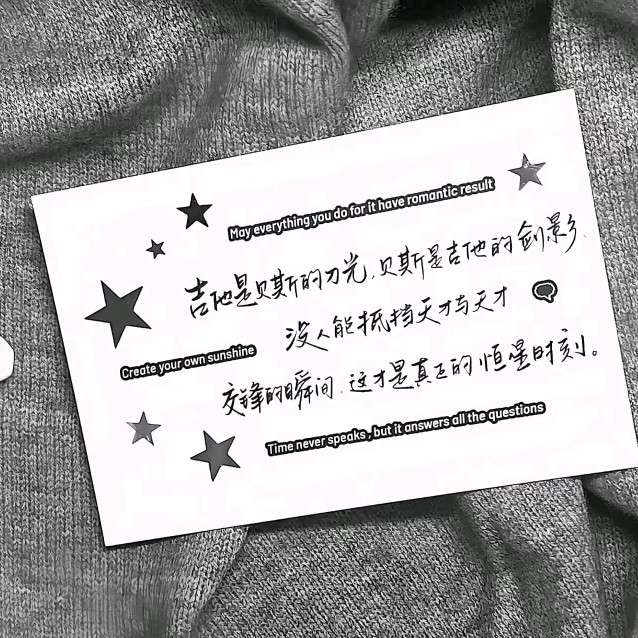 May everything you do for it have romantic result
吉他是贝斯的刀光,贝斯是吉他的剑影,
没人能抵挡天才与天才
Create your own sunshine
交锋的瞬间,这才是真正的恒星时刻。
Time never speaks , but it answers all the questions